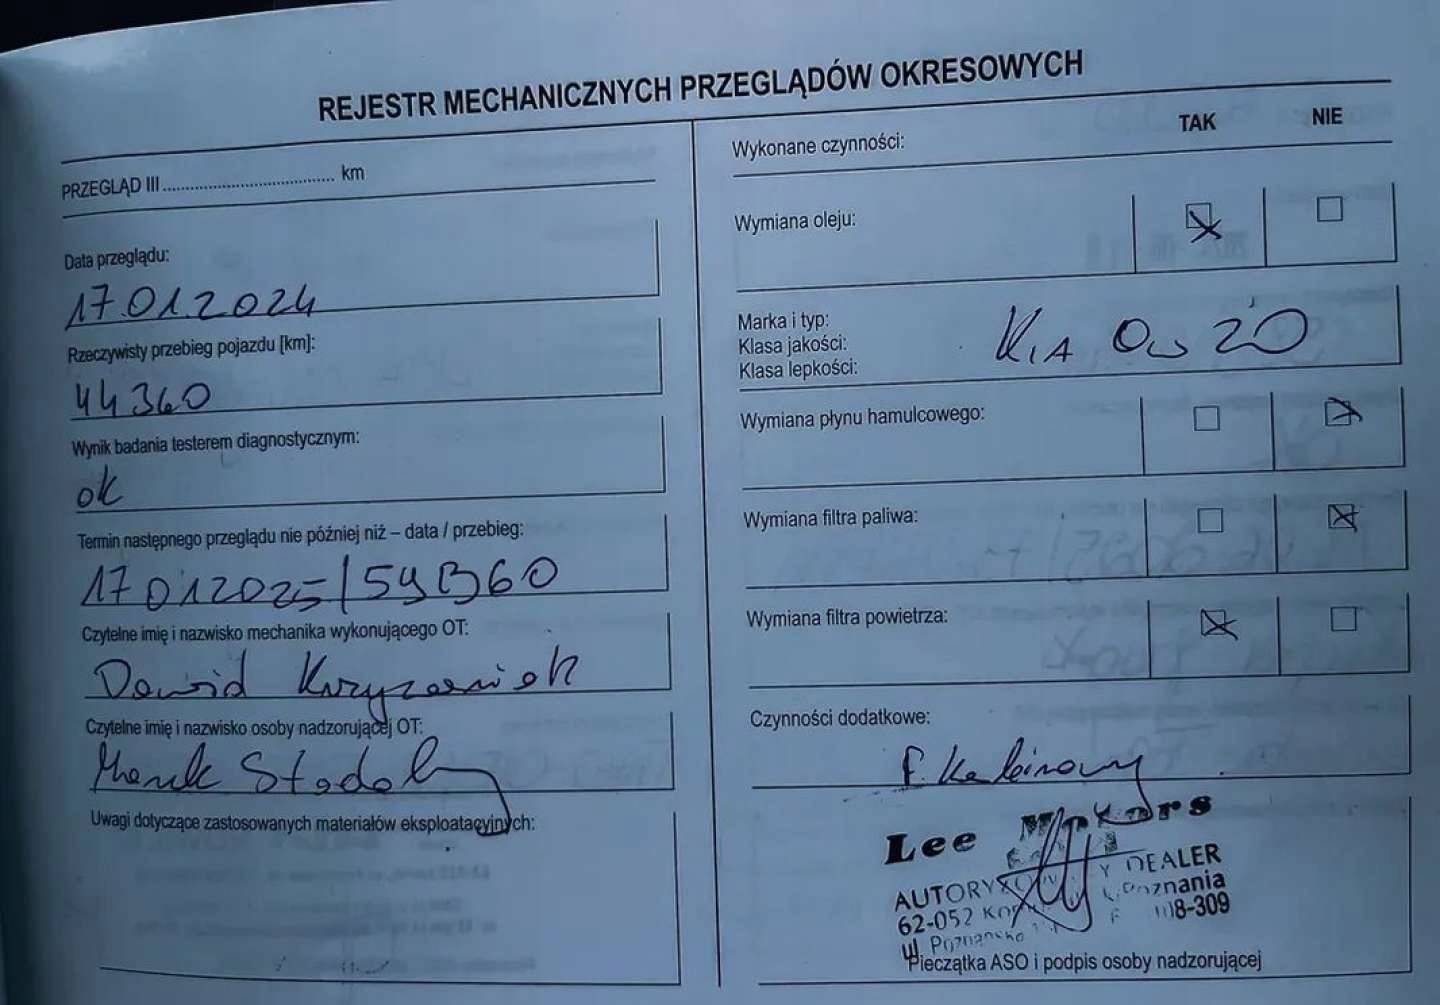 REJESTR MECHANICZNYCH PRZEGLĄDÓW OKRESOWYCH
PRZEGLĄD III..................................... km
Data przeglądu:
17.01.2024
Rzeczywisty przebieg pojazdu [km]:
44360
Wynik badania testerem diagnostycznym:
ok
Termin następnego przeglądu nie później niż – data / przebieg:
17 01 2025 / 59360
Czytelne imię i nazwisko mechanika wykonującego OT:
Dawid Krzyżaniak
Czytelne imię i nazwisko osoby nadzorującej OT:
Marek Stodolny
Uwagi dotyczące zastosowanych materiałów eksploatacyjnych:
Wykonane czynności: TAK NIE
Wymiana oleju:
Marka i typ:
Klasa jakości:
Klasa lepkości:
KIA 0w20
Wymiana płynu hamulcowego:
Wymiana filtra paliwa:
Wymiana filtra powietrza:
Czynności dodatkowe:
f. kabinowy
Lee Motors
DEALER
62-052
ul
8-309
Pieczątka ASO i podpis osoby nadzorującej